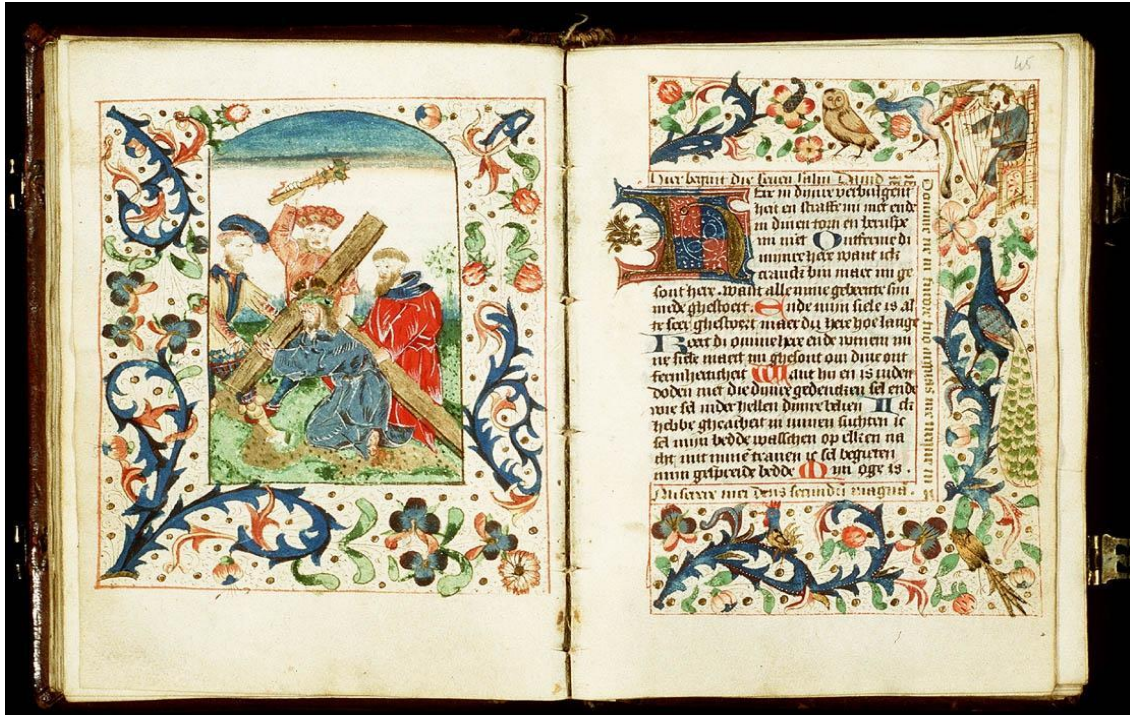 45
Hier begint die seven salm David
Here in dynre verbulgent
heit en straffe mi niet ende
in dinen torn en berispe
mi niet Ontferme di
mynre here want ich
cranck bin maec mi ge
sont here want alle mine gebeente sin
mede ghestoert. Ende myn siele is al
te seer ghestoert maer du here hoe lange
Keert di omme here ende verwem mi
ne siele maect mi ghesont om dine ont
fermherticheit Want hi en is inden
doden niet die dynre gedencken sel ende
wie sel inder hellen dynre belien Ick
hebbe ghearbeit in minen suchten ic
sel myn bedde wasschen op elken na
cht mit minen tranen ic sel begieten
myn gespreide bedde Myn oge is.
Miserere mei deus secundum magnam.
Domine ne in furore tuo arguas me neque in